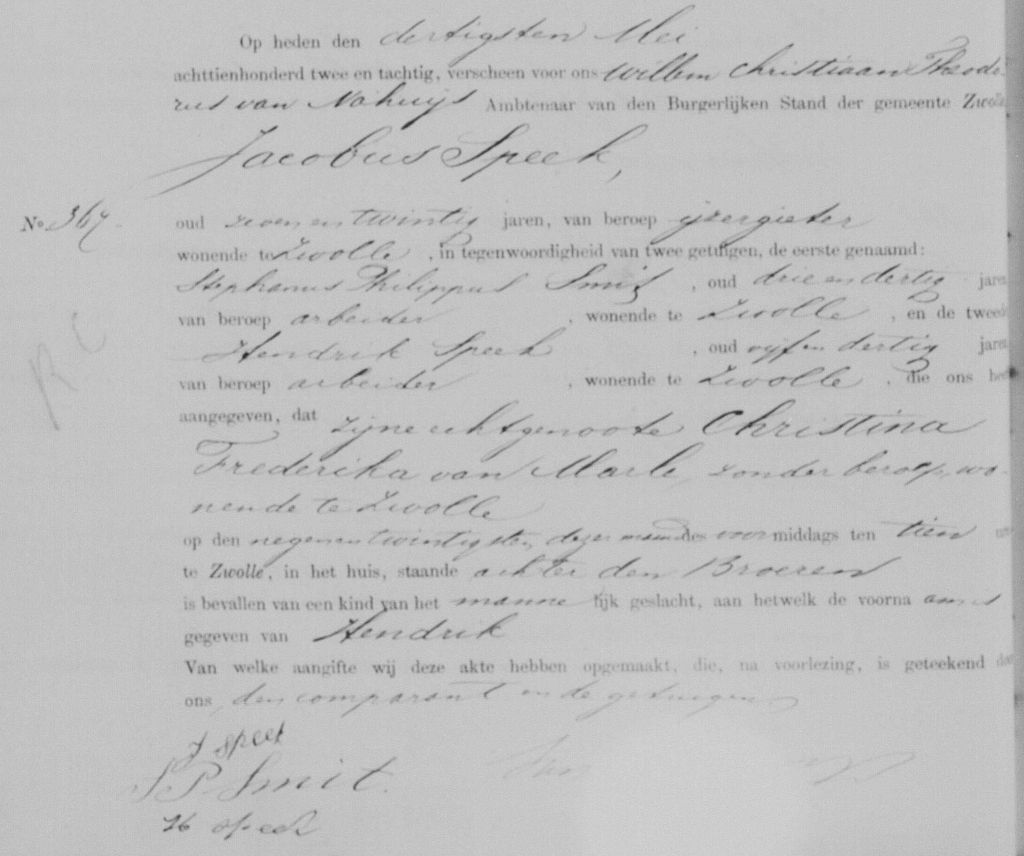 Op heden den dertigsten Mei
achttienhonderd twee en tachtig, verscheen voor ons Willem Christiaan Theodo-
rus van Nahuijs Ambtenaar van den Burgerlijken Stand der gemeente Zwolle
Jacobus Speek,
No. 367.
oud zevenentwintig jaren, van beroep ijzergieter
wonende te Zwolle, in tegenwoordigheid van twee getuigen, de eerste genaamd:
Stephanus Philippus Smit, oud drieendertig jaren
van beroep arbeider, wonende te Zwolle, en de tweede
Hendrik Speek, oud vijfendertig jaren
van beroep arbeider, wonende te Zwolle, die ons hee
aangegeven, dat zijne echtgenoote Christina
Frederika van Marle, zonder beroep, wo-
nende te Zwolle
op den negenentwintigsten dezer maandes voormiddags ten tien
te Zwolle, in het huis, staande achter den Broeren
is bevallen van een kind van het mannelijk geslacht, aan hetwelk de voornaam is
gegeven van Hendrik
Van welke aangifte wij deze akte hebben opgemaakt, die, na voorlezing, is geteekend door
ons, den comparant en de getuigen
J Speek
S P Smit.
H Speek
R C